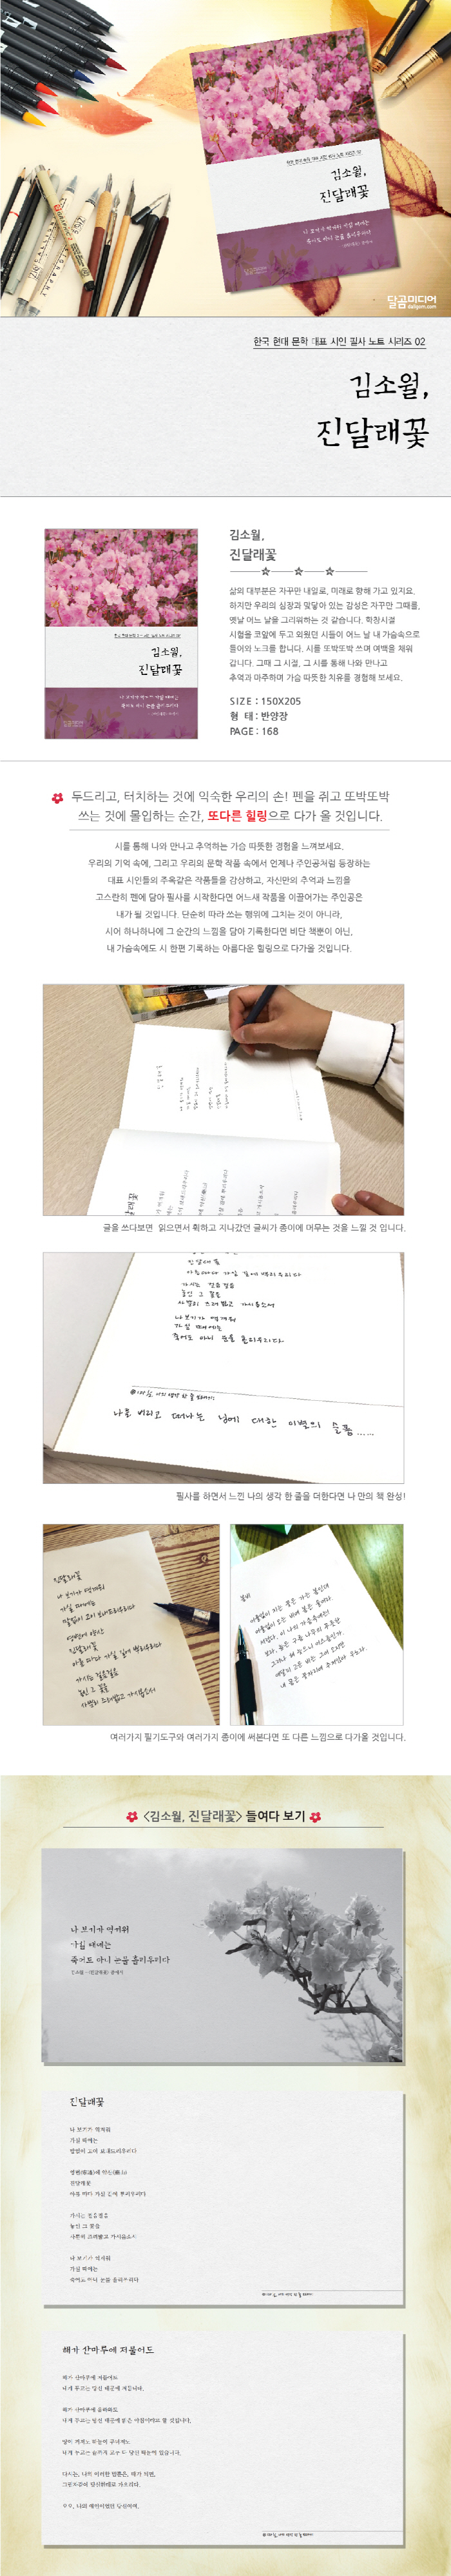 한국 현대 문학 대표 시인 필사 노트 시리즈 02
김소월,
진달래꽃
나 보기가 역겨워 가실 때에는
죽어도 아니 눈물 흘리우리다
달곰미디어
dalgom.com
한국 현대 문학 대표 시인 필사 노트 시리즈 02
김소월,
진달래꽃
김소월,
진달래꽃
나 보기가 역겨워 가실 때에는
죽어도 아니 눈물 흘리우리다
김소월,
진달래꽃
삶의 대부분은 자꾸만 내일로, 미래로 향해 가고 있지요.
하지만 우리의 심장과 맞닿아 있는 감성은 자꾸만 그때를,
옛날 어느 날을 그리워하는 것 같습니다. 학창시절
시험을 코앞에 두고 외웠던 시들이 어느 날 내 가슴속으로
들어와 노크를 합니다. 시를 또박또박 쓰며 여백을 채워
갑니다. 그때 그 시절, 그 시를 통해 나와 만나고
추억과 마주하며 가슴 따뜻한 치유를 경험해 보세요.
SIZE : 150X205
형 태 : 반양장
PAGE : 168
두드리고, 터치하는 것에 익숙한 우리의 손! 펜을 쥐고 또박또박
쓰는 것에 몰입하는 순간, 또다른 힐링으로 다가 올 것입니다.
시를 통해 나와 만나고 추억하는 가슴 따뜻한 경험을 느껴보세요.
우리의 기억 속에, 그리고 우리의 문학 작품 속에서 언제나 주인공처럼 등장하는
대표 시인들의 주옥같은 작품들을 감상하고, 자신만의 추억과 느낌을
고스란히 펜에 담아 필사를 시작한다면 어느새 작품을 이끌어가는 주인공은
내가 될 것입니다. 단순히 따라 쓰는 행위에 그치는 것이 아니라,
시어 하나하나에 그 순간의 느낌을 담아 기록한다면 비단 책뿐이 아닌,
내 가슴속에도 시 한편 기록하는 아름다운 힐링으로 다가올 것입니다.
글을 쓰다보면 읽으면서 휙하고 지나갔던 글씨가 종이에 머무는 것을 느낄 것 입니다.
진달래꽃
아름따다 가실 길에 뿌리우리다
가시는 걸음걸음
놓인 그 꽃을
사뿐히 즈려밟고 가시옵소서
나 보기가 역겨워
가실 때에는
죽어도 아니 눈물 흘리우리다.
나를 버리고 떠나는 님에 대한 이별의 슬픔......
필사를 하면서 느낀 나의 생각 한 줄을 더한다면 나 만의 책 완성!
진달래꽃
나 보기가 역겨워
가실 때에는
말없이 고이 보내드리우리다
영변에 약산
진달래꽃
아름 따다 가실 길에 뿌리우리다
가시는 걸음걸음
놓인 그 꽃을
사뿐히 즈려밟고 가시옵소서
여러가지 필기도구와 여러가지 종이에 써본다면 또 다른 느낌으로 다가올 것입니다.
<김소월, 진달래꽃> 들여다 보기
나 보기가 역겨워
가실 때에는
죽어도 아니 눈물 흘리우리다
진달래꽃
나 보기가 역겨워
가실 때에는
말없이 고이 보내드리우리다
영변(寧邊)에 약산(藥山)
진달래꽃
아름 따다 가실 길에 뿌리우리다
가시는 걸음걸음
놓인 그 꽃을
사뿐히 즈려밟고 가시옵소서
나 보기가 역겨워
가실 때에는
죽어도 아니 눈물 흘리우리다
해가 산마루에 저물어도
해가 산마루에 저물어도
내게 두고는 당신 때문에 저뭅니다.
해가 산마루에 올라와도
내게 두고는 당신 때문에 밝은 아침이라고 할 것입니다.
땅이 꺼져도 하늘이 무너져도
내게 두고는 끝까지 모두 다 당신 때문에 있습니다.
다시는, 나의 이러한 맘뿐은, 때가 되면,
그림자같이 당신한테로 가오리다.
오오, 나의 애인이었던 당신이여.